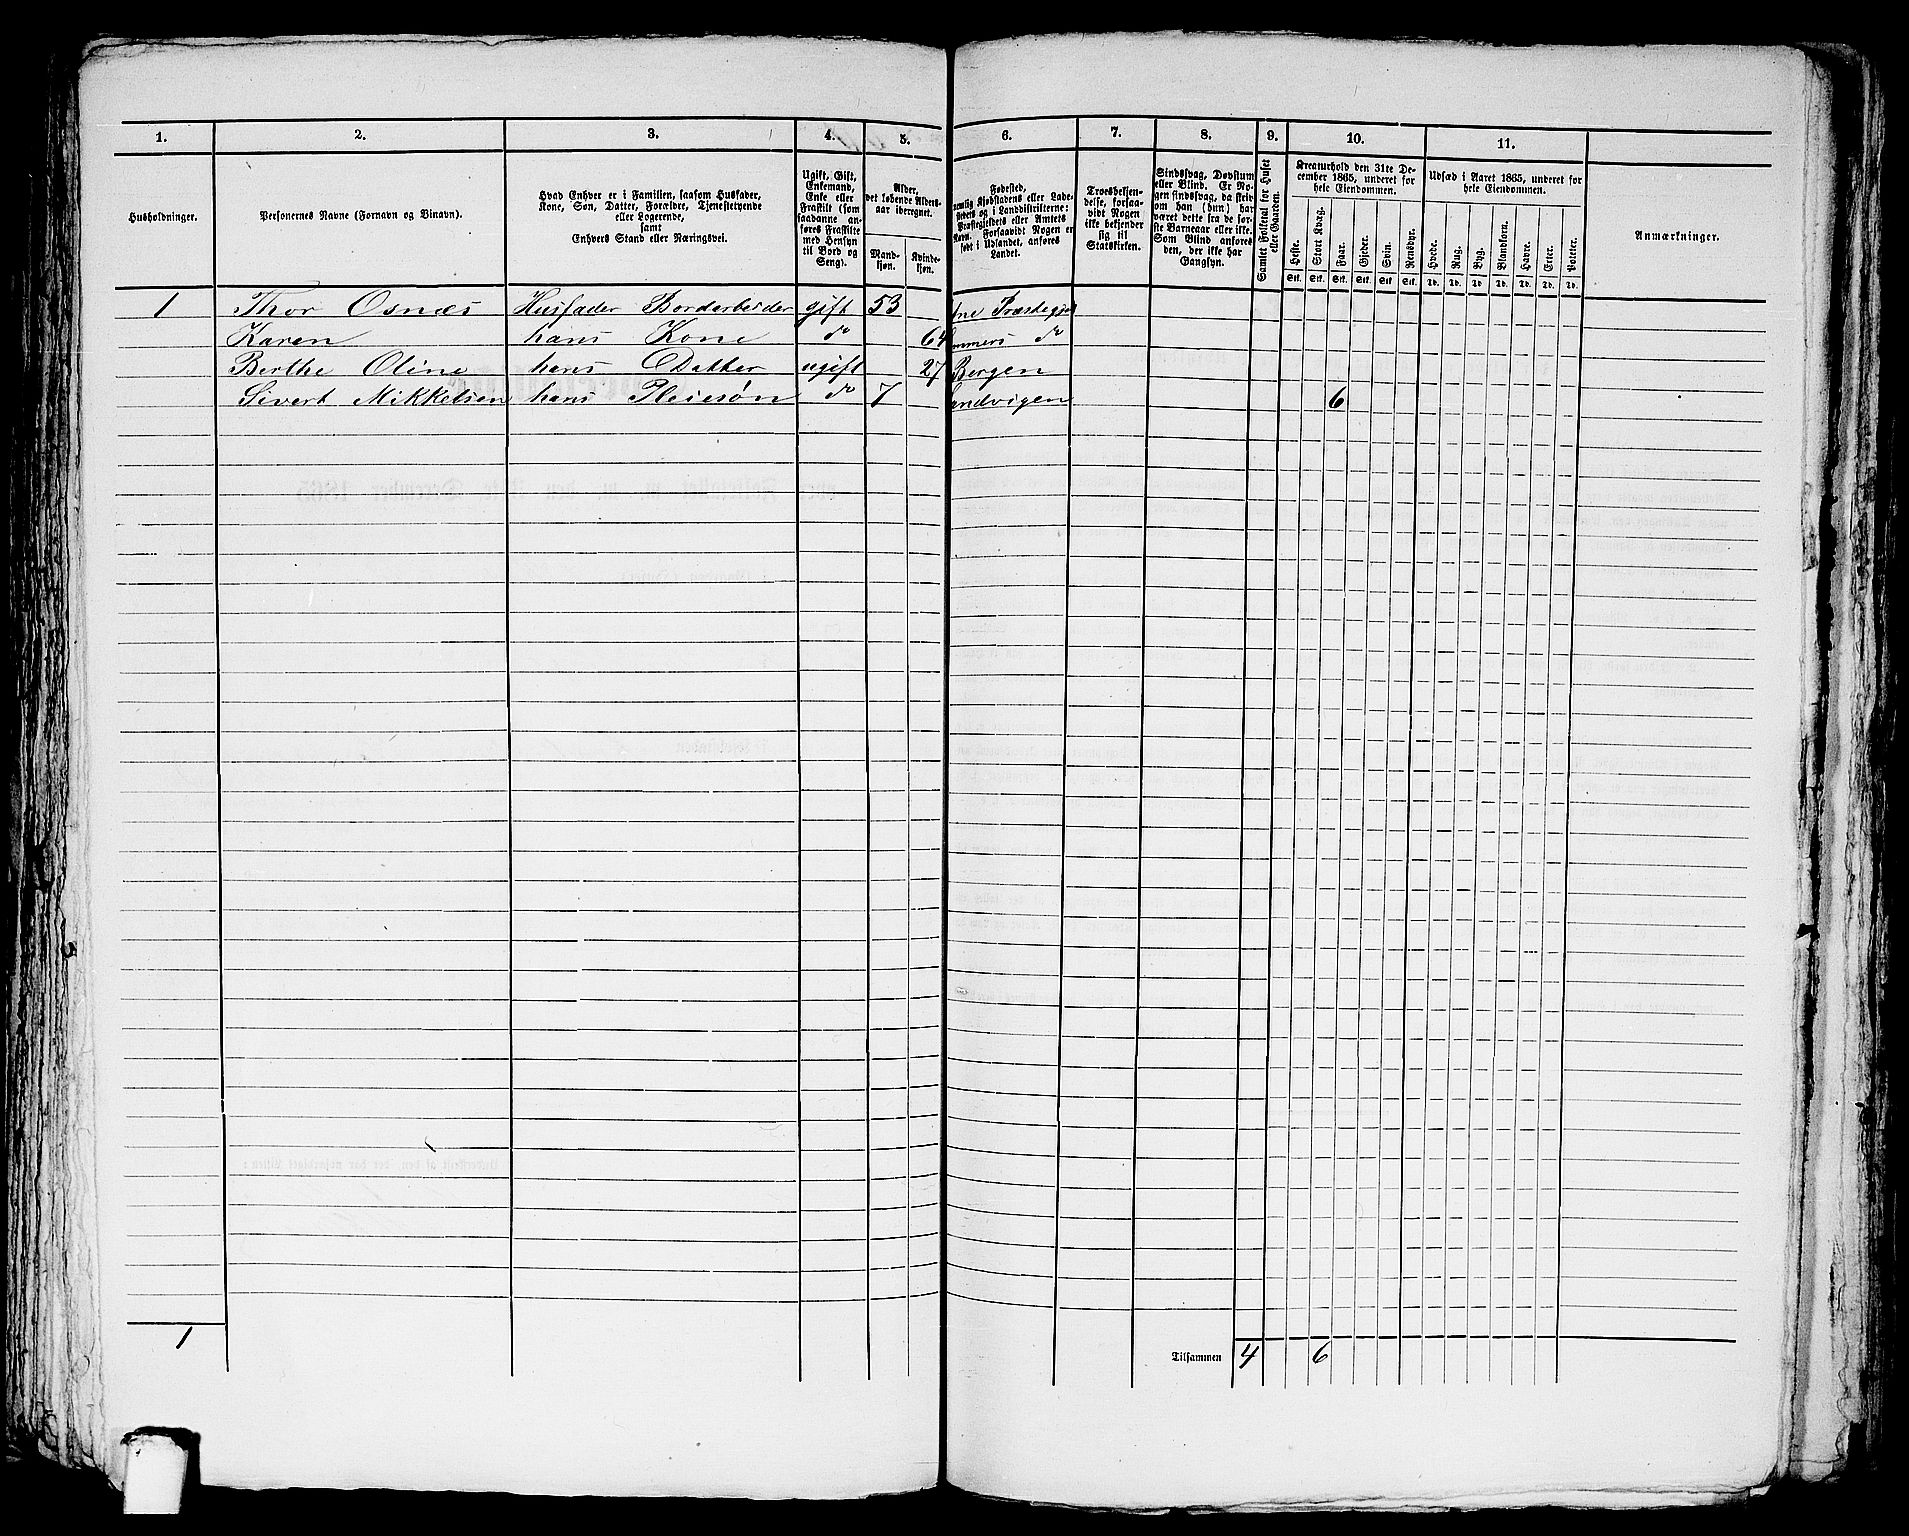 1. 2. 3. 4. 5. 6. 7. 8. 9. 10. 11.
Husholdninger.
Personernes Navne (Fornavn og Binavn).
Hvad Enhver er i Familien, saasom Husfader,
Kone, Søn, Datter, Forældre, Tjenestetyende
eller Logerende,
samt
Enhvers Stand eller Næringsvei.
Ugift, Gift,
Enkemand,
Enke eller
Fraskilt (som
saadanne an-
føres Fraskilte
med Hensyn
til Bord og
Seng).
Alder,
det løbende Alders-
aar iberegnet.
Mand-
kjøn.
Kvinde-
kjøn.
Fødested,
nemlig Kjøbstadens eller Lade-
stedets og i Landdistrikterne:
Præstegjeldets eller Amtets
Navn. Forsaavidt Nogen er
født i Udlandet, anføres
Landet.
Troesbekjen-
delse, forsaa-
vidt Nogen
ikke bekjender
sig til
Statskirken.
Sindssvag, Døvstum
eller Blind. Er No-
gen sindssvag, da skriv
om han (hun) har
været dette fra de før-
ste Barneaar eller ikke.
Som Blind anføres
den, der ikke har
Gangsyn.
Samlet Folketal for Huset
eller Gaarden.
Kreaturhold den 31te De-
cember 1865, underet for
hele Eiendommen.
Heste. Stort Kvæg. Faar. Gjeder. Svin. Rensdyr.
Stk. Stk. Stk. Stk. Stk. Stk.
Udsæd i Aaret 1865, underet for
hele Eiendommen.
Hvede. Rug. Byg. Blandkorn. Havre. Erter. Poteter.
Td. Td. Td. Td. Td. Td. Td.
Anmærkninger.
1 Thor Osnæs Husfader Bordarbeider gift 53 Præstegjel
Karen hans Kone do 64 do
Berthe Oline hans Datter ugift 27 Bergen
Sivert Mikkelsen hans Pleiesøn do 7 andvigen 6
1 Tilsammen 4 6